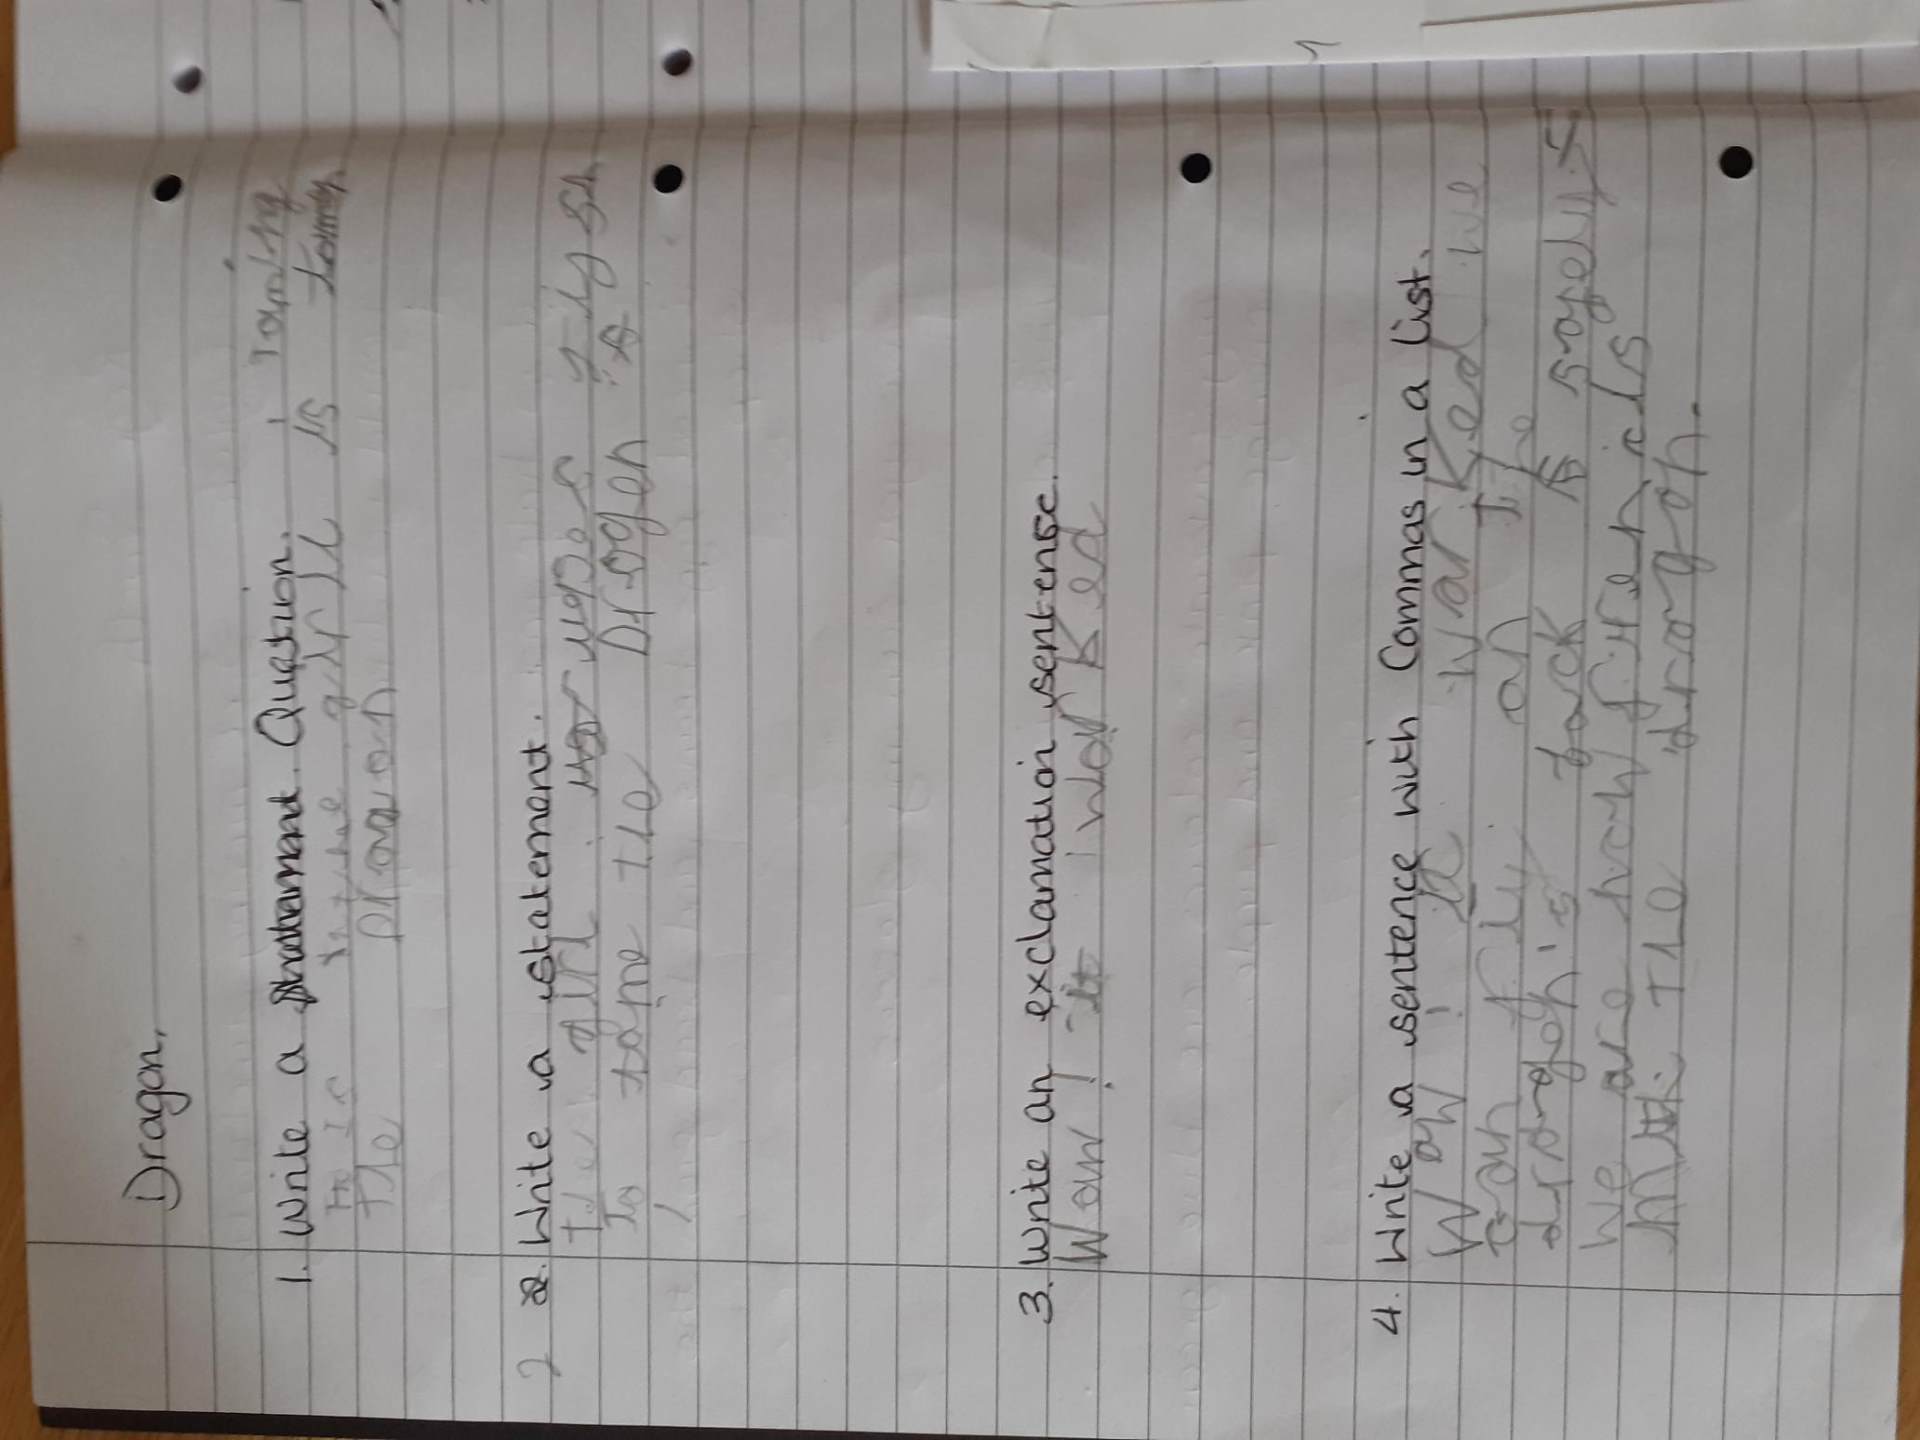 Dragon.
1. Write a Question.
is the girl is taming
the
2. Write a statement.
The girl uses fish
to tame the Drogen
3. Write an exclamation sentense.
Wow! it worked
4. Write a sentence with Commas in a list.
Wow! it worked we
can fly on the
drangon's back
We are now frienids
with the drangon.